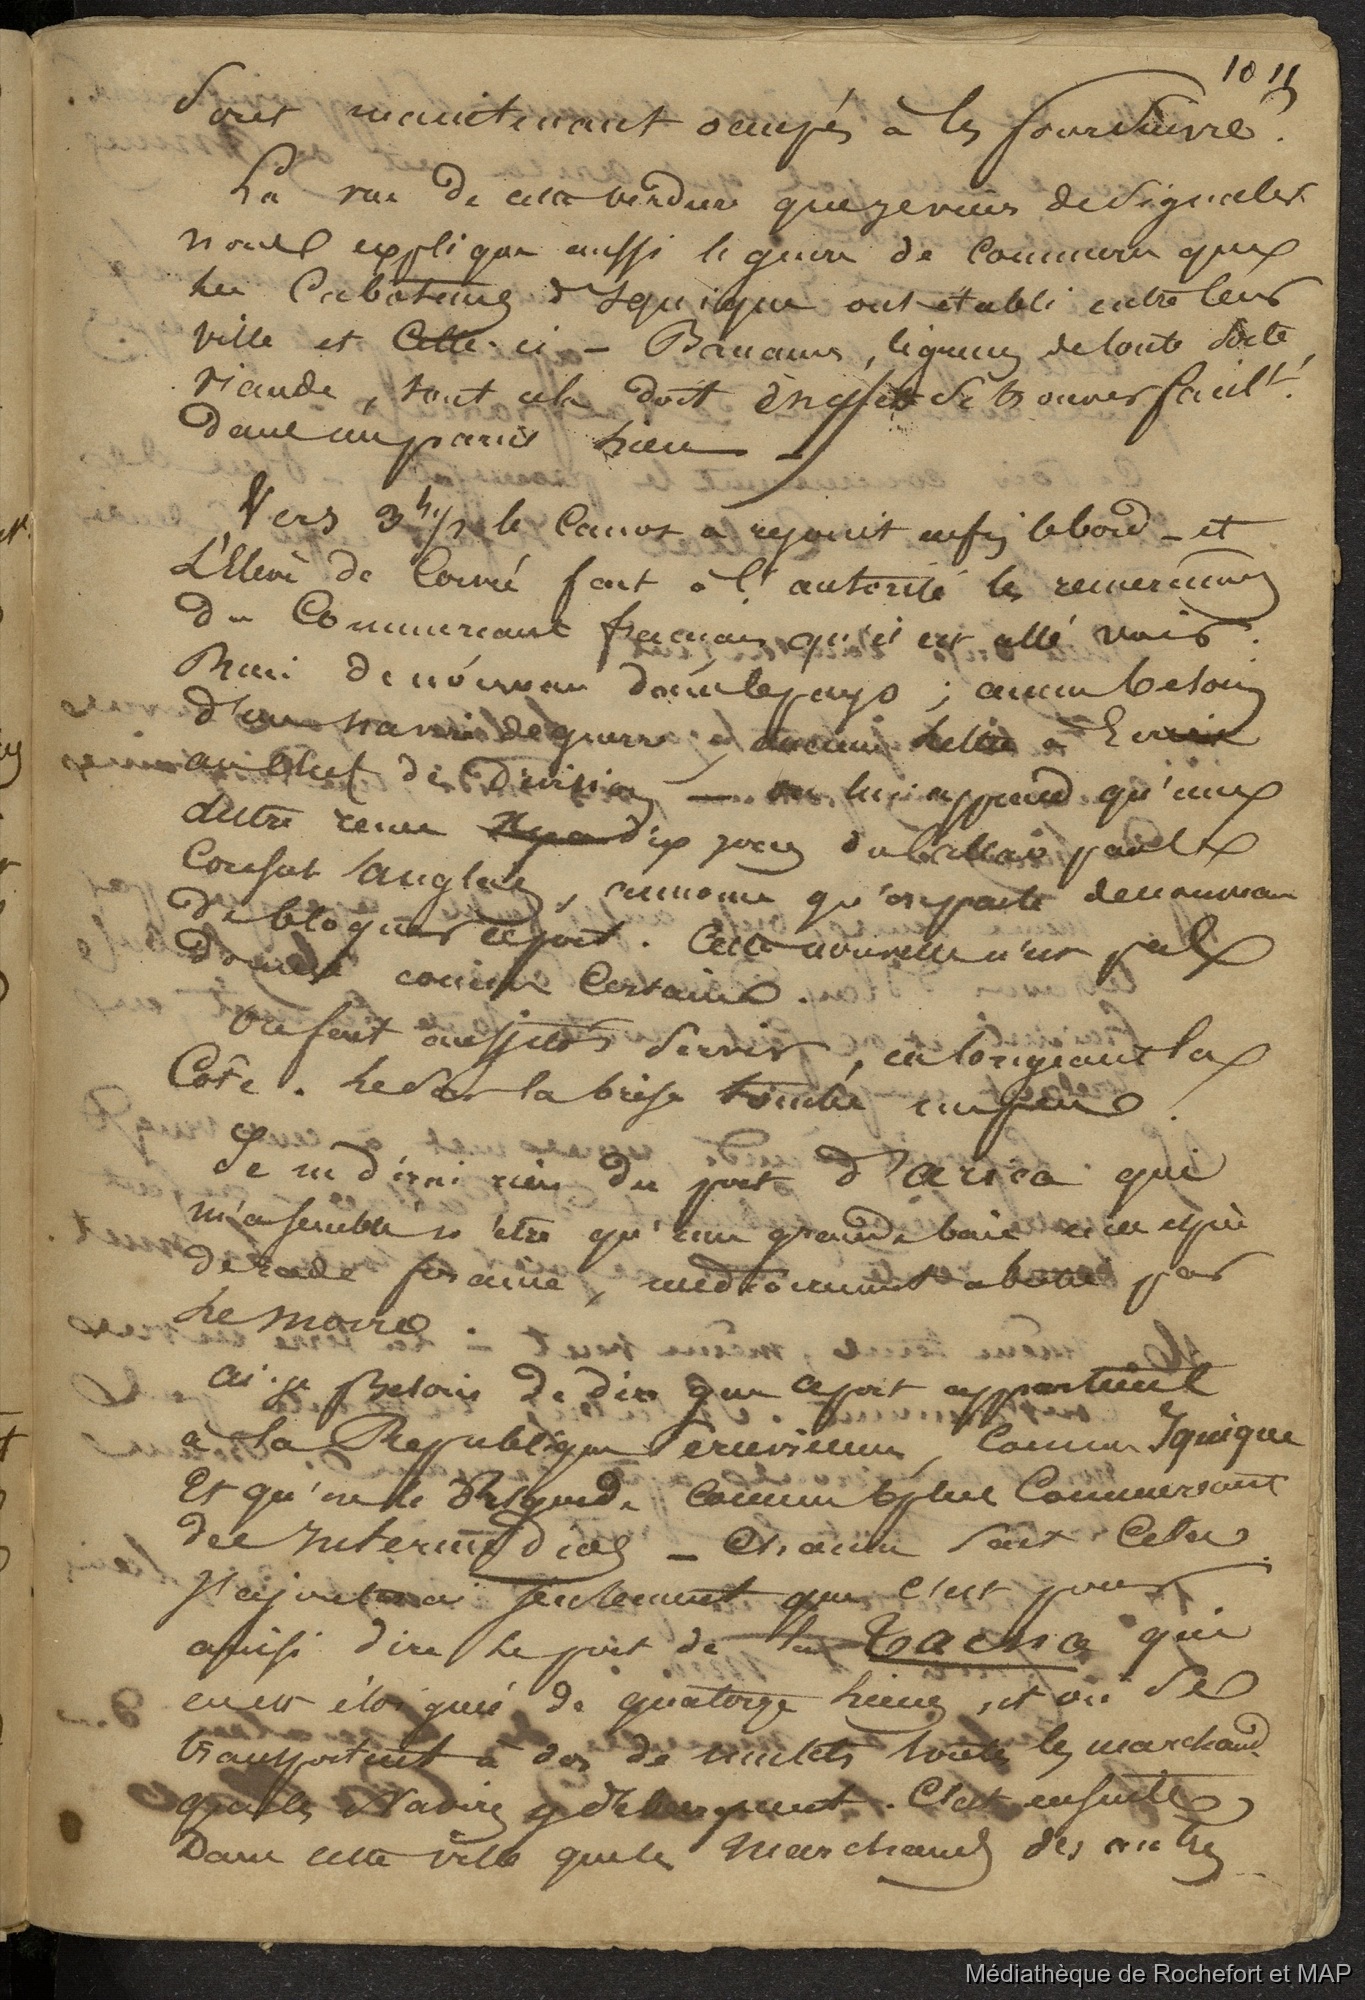 10 11
sont maintenant occupés à les poursuivre.
La vue de cette verdure que je viens de signaler
nous explique aussi le genre de commerce que
les Caboteurs d'Iquique ont établi entre leur
ville et Celle-ci — Bananes, légumes de toute sorte,
viande, tout cela doit en effet se trouver facilt.
dans un pareil lieu —
Vers 3h 1/2 le Canot a rejoint enfin le bord — et
L'Elève de Corvée fait à l'autorité les remerciemens
du Commerçant français qu'il est allé voir.
Rien de nouveau dans le pays ; aucun besoin
d'un navire de guerre, aucune lettre à Envoier
au Chef de Division — on lui apprend qu'une
lettre reçue dix jours du Callao par le
Consul anglais, annonce qu'on parle de nouveau
de bloquer ce port. Cette nouvelle n'est pas
donnée comme Certaine.
On fait aussitôt servir, en longeant la
Côte. Le soir la brise tombe un peu.
Je ne dirai rien du port d'arica qui
m'a semblé n'être qu'une grande baie
de rade foraine, médiocrement abritée par
Le morro.
ai-je Besoin de dire que ce port appartient
à la République Peruvienne, comme Iquique
Et qu'on le Regarde comme le plus Commerçant
des Intermedios — Chacun sait Cela.
J'ajouterai seulement que c'est pour
ainsi dire le port de la Tacna qui
en est éloigné de quatorze lieues, et où se
transportent à dos de mulets toutes les marchand.
que les Navires y débarquent. C'est ensuite
Dans cette ville que les marchands des autres
Médiathèque de Rochefort et MAP